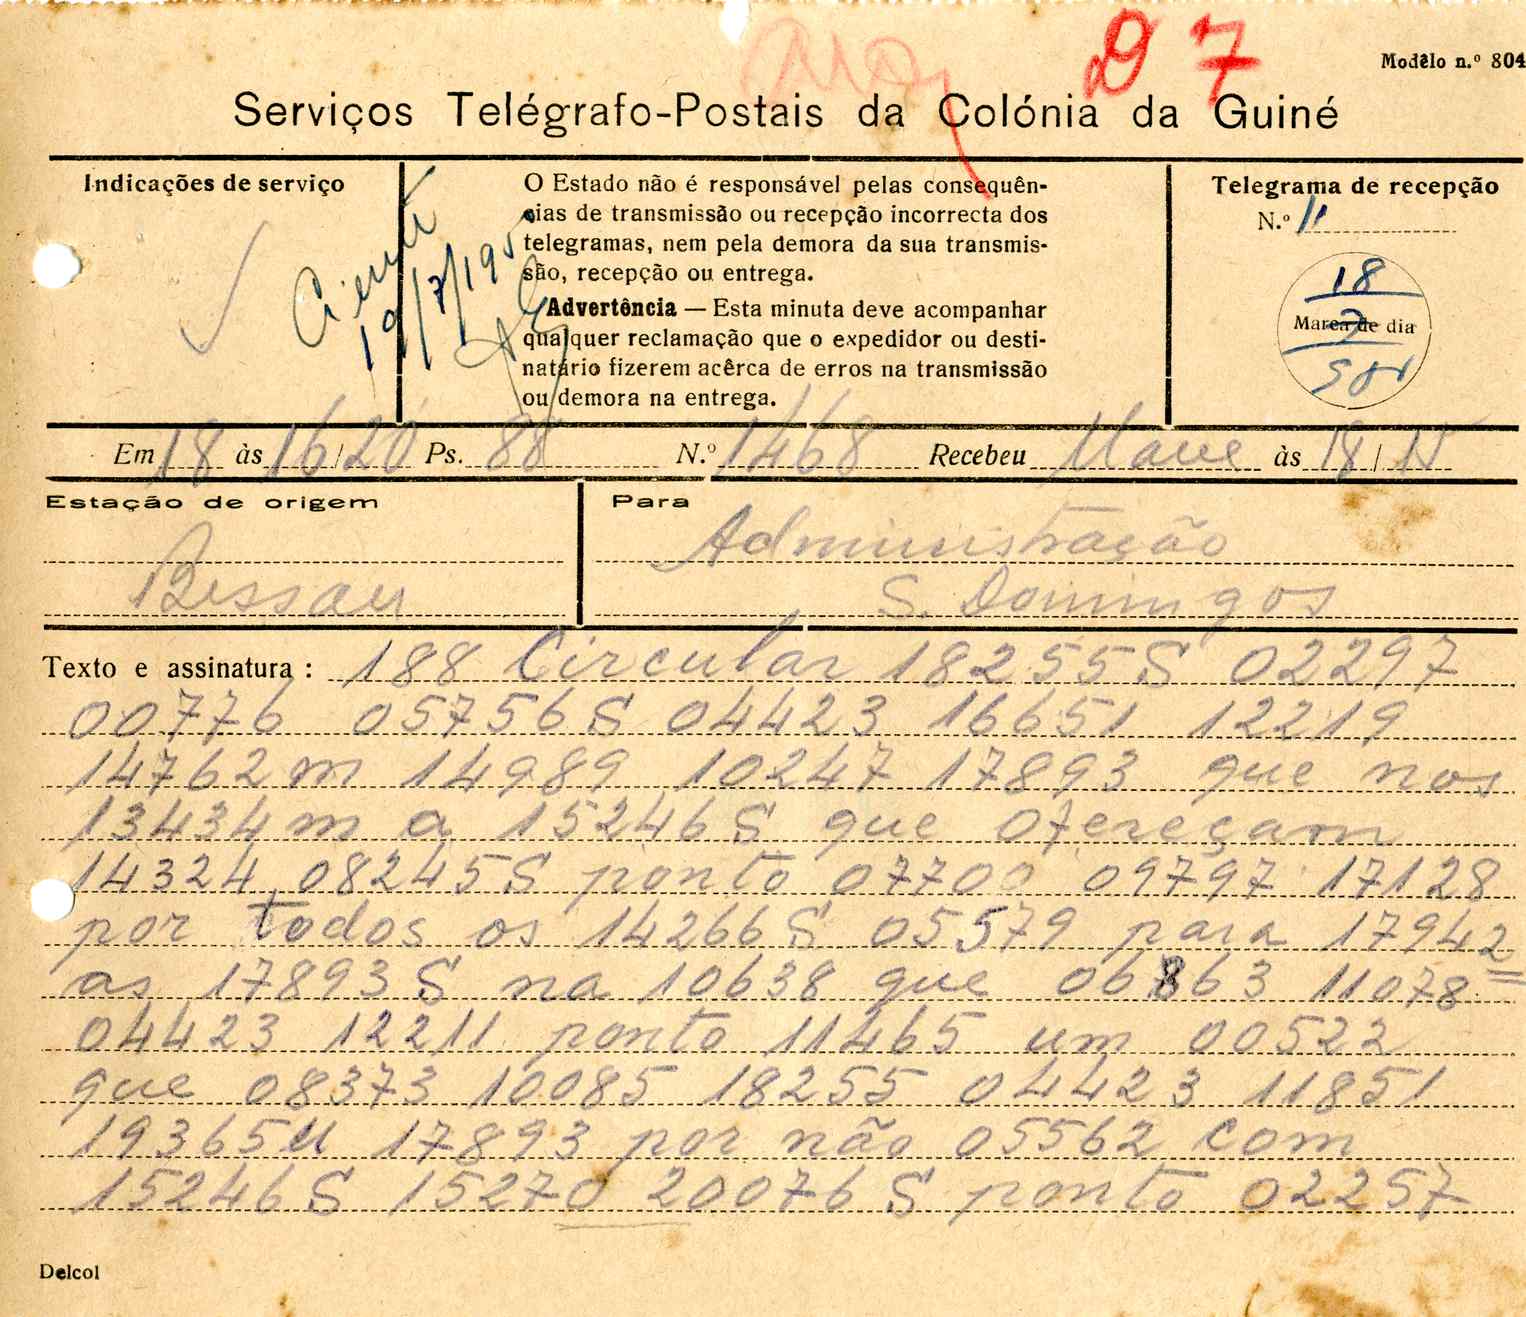 D 7
Modêlo n.º 804
Serviços Telégrafo-Postais da Colónia da Guiné
Indicações de serviço
Ciente
19/7/195
O Estado não é responsável pelas consequên-
cias de transmissão ou recepção incorrecta dos
telegramas, nem pela demora da sua transmis-
são, recepção ou entrega.
Advertência — Esta minuta deve acompanhar
qualquer reclamação que o expedidor ou desti-
natário fizerem acêrca de erros na transmissão
ou demora na entrega.
Telegrama de recepção
N.º 11
18
Marca de dia
7
Em 18 às 16/20 Ps. 88 N.º 1468 Recebeu às 18/15
Estação de origem
Bissau
Para
Administração
S. Domingos
Texto e assinatura: 188 Circular 18255S 02297
00776 05756S 04423 16651 12219
14762m 14989 10247 17893 que nos
13434m a 15246S que ofereçam
14324 08245S ponto 07700 09797 17128
por todos os 14266S 05579 para 17942
as 17893S na 10638 que 06863 11078
04423 12211 ponto 11465 um 00522
que 08373 10085 18255 04423 11851
19365u 17893 por não 05562 com
15246S 15270 20076S ponto 02257
Delcol